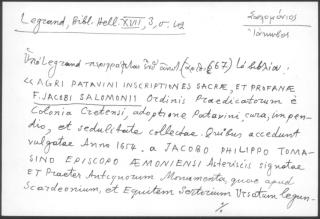 Legrand, Bibl. Hell. XVII, 3, σ. 42
Σαλομώνιος
Ἰάκωβος
Ὑπὸ Legrand περιγράφεται ὑπὸ (ἀριθ. 667) τὸ βιβλίο:
« AGRI PATAVINI INSCRIPTIONES SACRÆ, ET PROFANÆ
F. JACOBI SALOMONII Ordinis Praedicatorum è
Colonia Cretensi, adoptione Patavini, cura, impen-
dio, et sedulitate collectae. Quibus accedunt
vulgatae Anno 1654. a JACOBO PHILIPPO TOMA-
SINO EPISCOPO ÆMONIENSI Asteriscis signatae
ET Praeter Antiquorum Monumenta, quae apud
Scardeonium, et Equitem Sertorium Ursatum legun-
./.